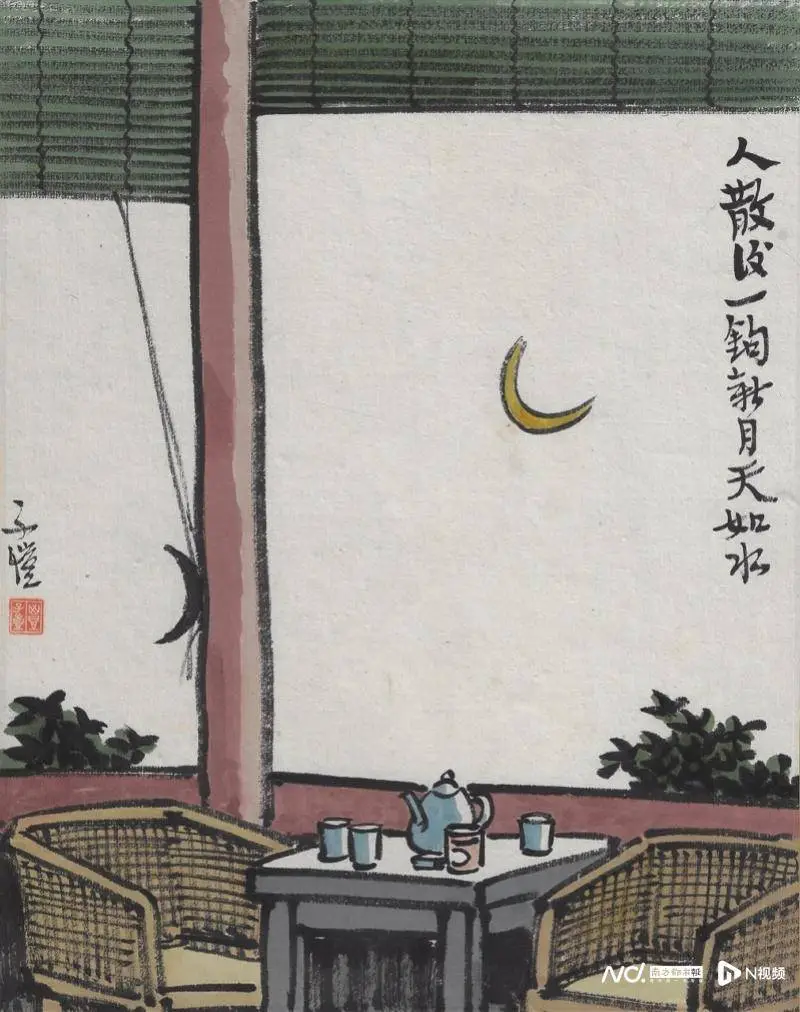 人散後一鈎新月天如水
子愷
南方都市報
N视频